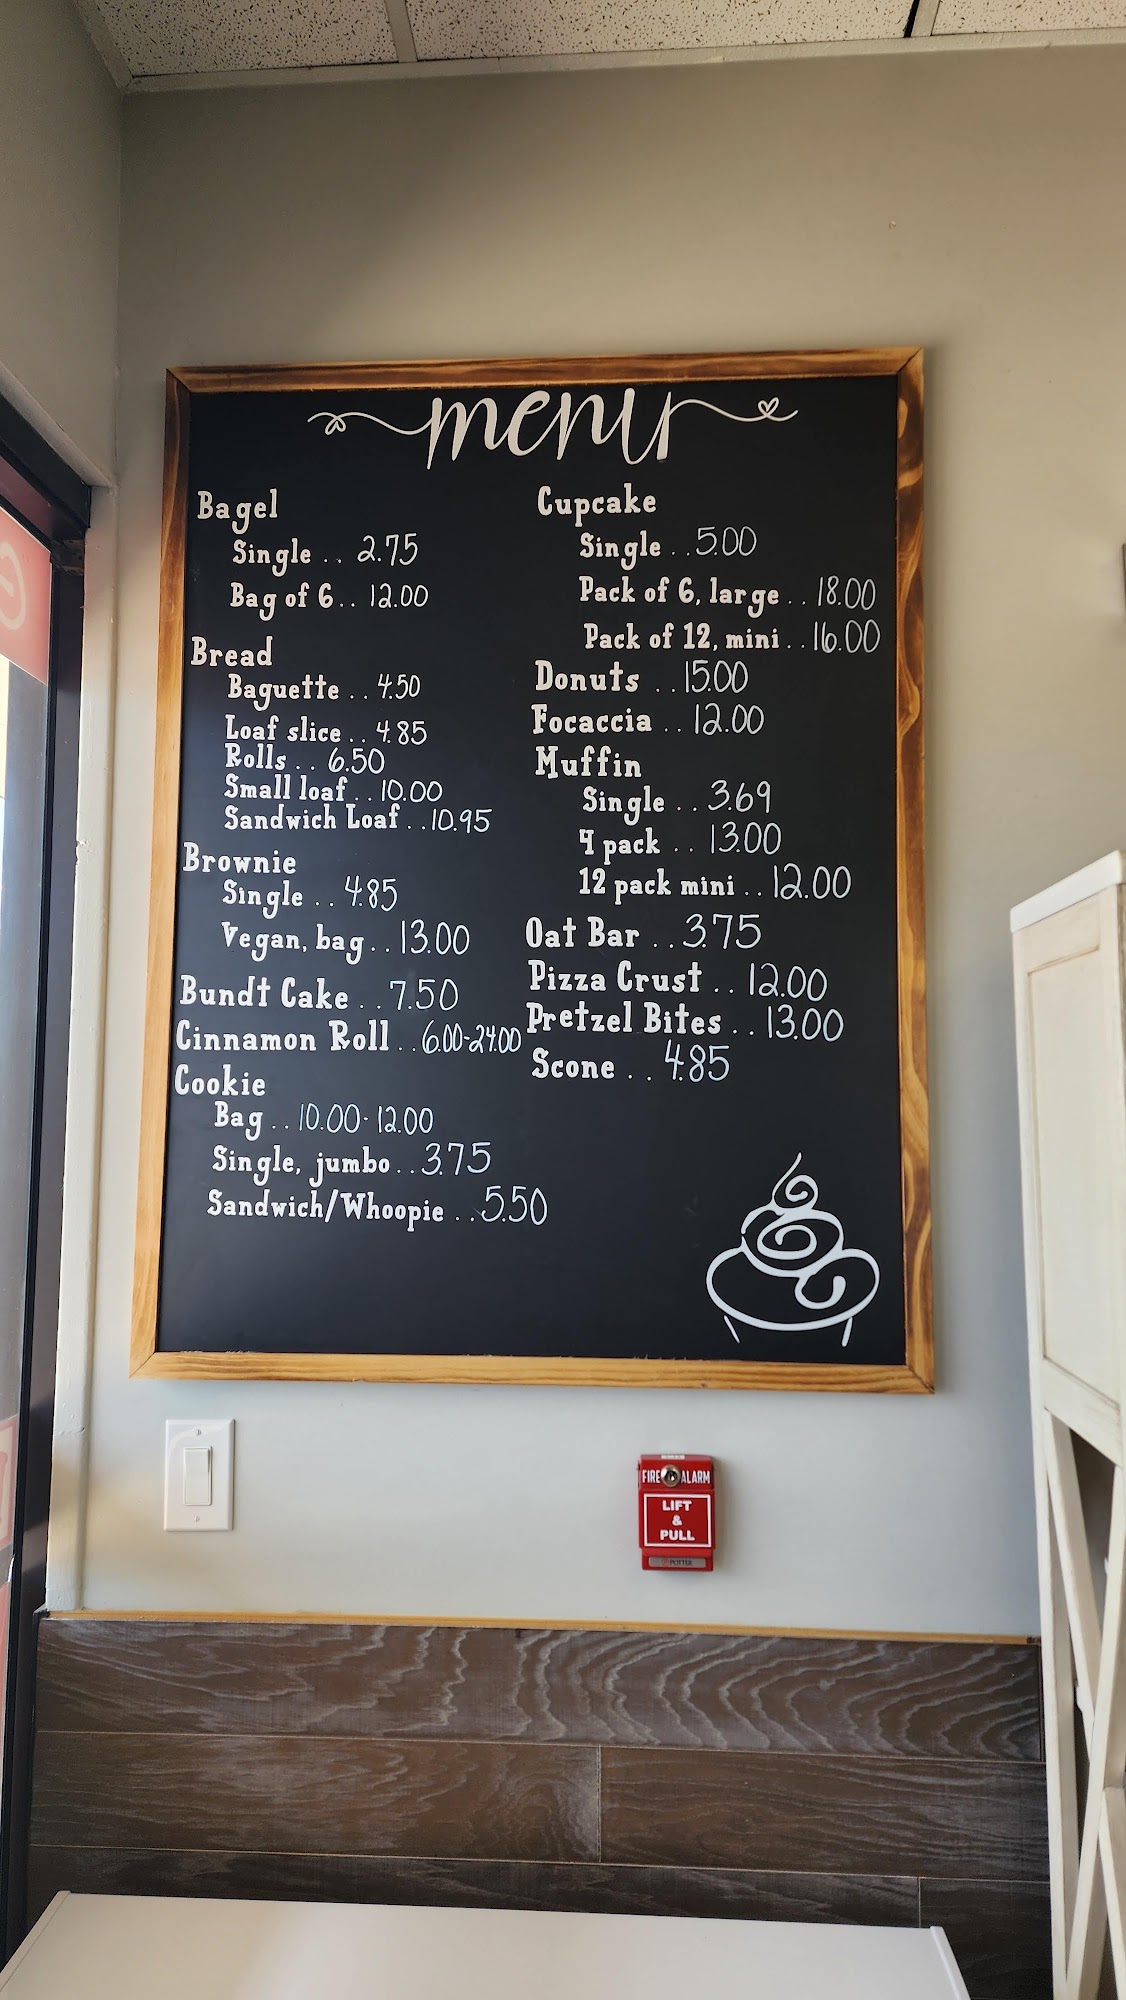 menu
Bagel
Single .. 2.75
Bag of 6.. 12.00
Bread
Baguette .. 4.50
Loaf slice .. 4.85
Rolls .. 6.50
Small loaf .. 10.00
Sandwich Loaf ..10.95
Brownie
Single .. 4.85
Vegan, bag.. 13.00
Bundt Cake ..7.50
Cinnamon Roll ..6.00-24.00
Cookie
Bag ..10.00-12.00
Single, jumbo..3.75
Sandwich/Whoopie ..5.50
Cupcake
Single ..5.00
Pack of 6, large .. 18.00
Pack of 12, mini ..16.00
Donuts ..15.00
Focaccia .. 12.00
Muffin
Single .. 3.69
4 pack .. 13.00
12 pack mini .. 12.00
Oat Bar ..3.75
Pizza Crust .. 12.00
Pretzel Bites .. 13.00
Scone .. 4.85
FIRE ALARM
LIFT
&
PULL
POTTER